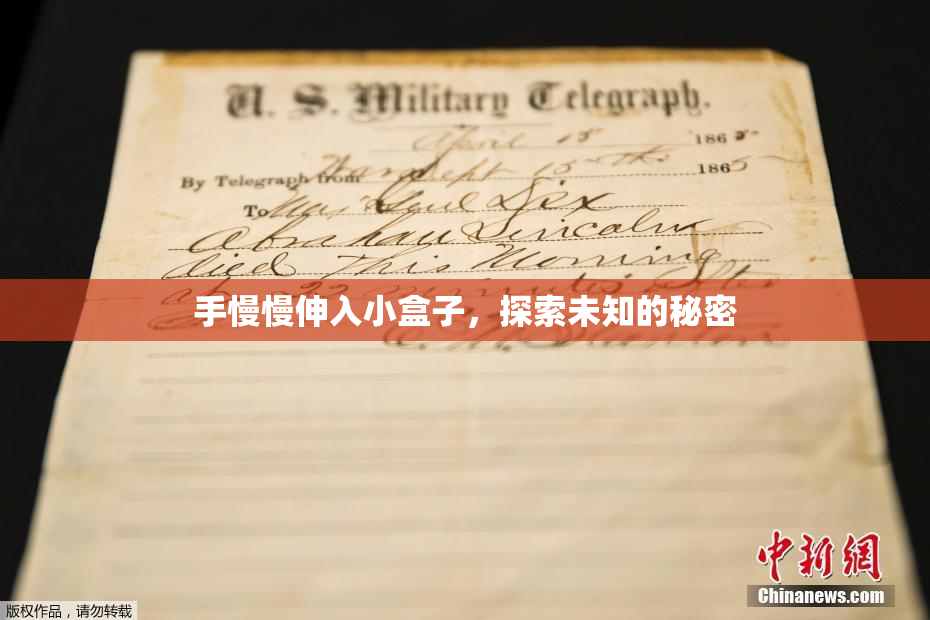 U. S. Military Telegraph.
April 15 1865
By Telegraph from War Dept 15th 1865
To Maj Genl Dix
Abraham Lincoln
died This Morning
at 22 minutes after
手慢慢伸入小盒子，探索未知的秘密
E. M. Stanton
中新网
Chinanews.com
版权作品，请勿转载